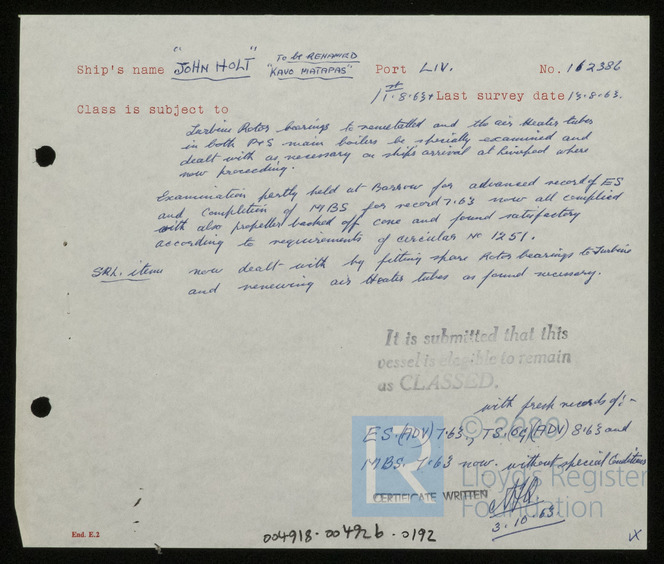 Ship's name "JOHN HOLT" To be RENAMED "KAVO MATAPAS" Port LIV. No. 162386
1st. 8.63 + Last survey date 13.8.63.
Class is subject to
Turbine Rotor bearings to remetalled and the air Heater tubes
in both P+S main boilers be specially examined and
dealt with as necessary on ships arrival at Liverpool where
now proceeding.
Examination partly held at Barrow for advanced record of ES
and Completion of MBS for record 7.63 now all complied
with also propeller backed off cone and found satisfactory
according to requirements of circular No 1251.
SRL. items now dealt with by fitting spare Rotor bearings to Turbine
and renewing air Heater tubes as found necessary.
It is submitted that this
vessel is elegible to remain
as CLASSED.
with fresh records of:-
ES.(ADV) 7.63, TS.(OG)(ADV) 8.63 and
MBS. 7.63 now. without special Conditions
CERTIFICATE WRITTEN
3.10.63.
© 2020
Lloyd's Register
Foundation
End. E.2
004918-004926-0192